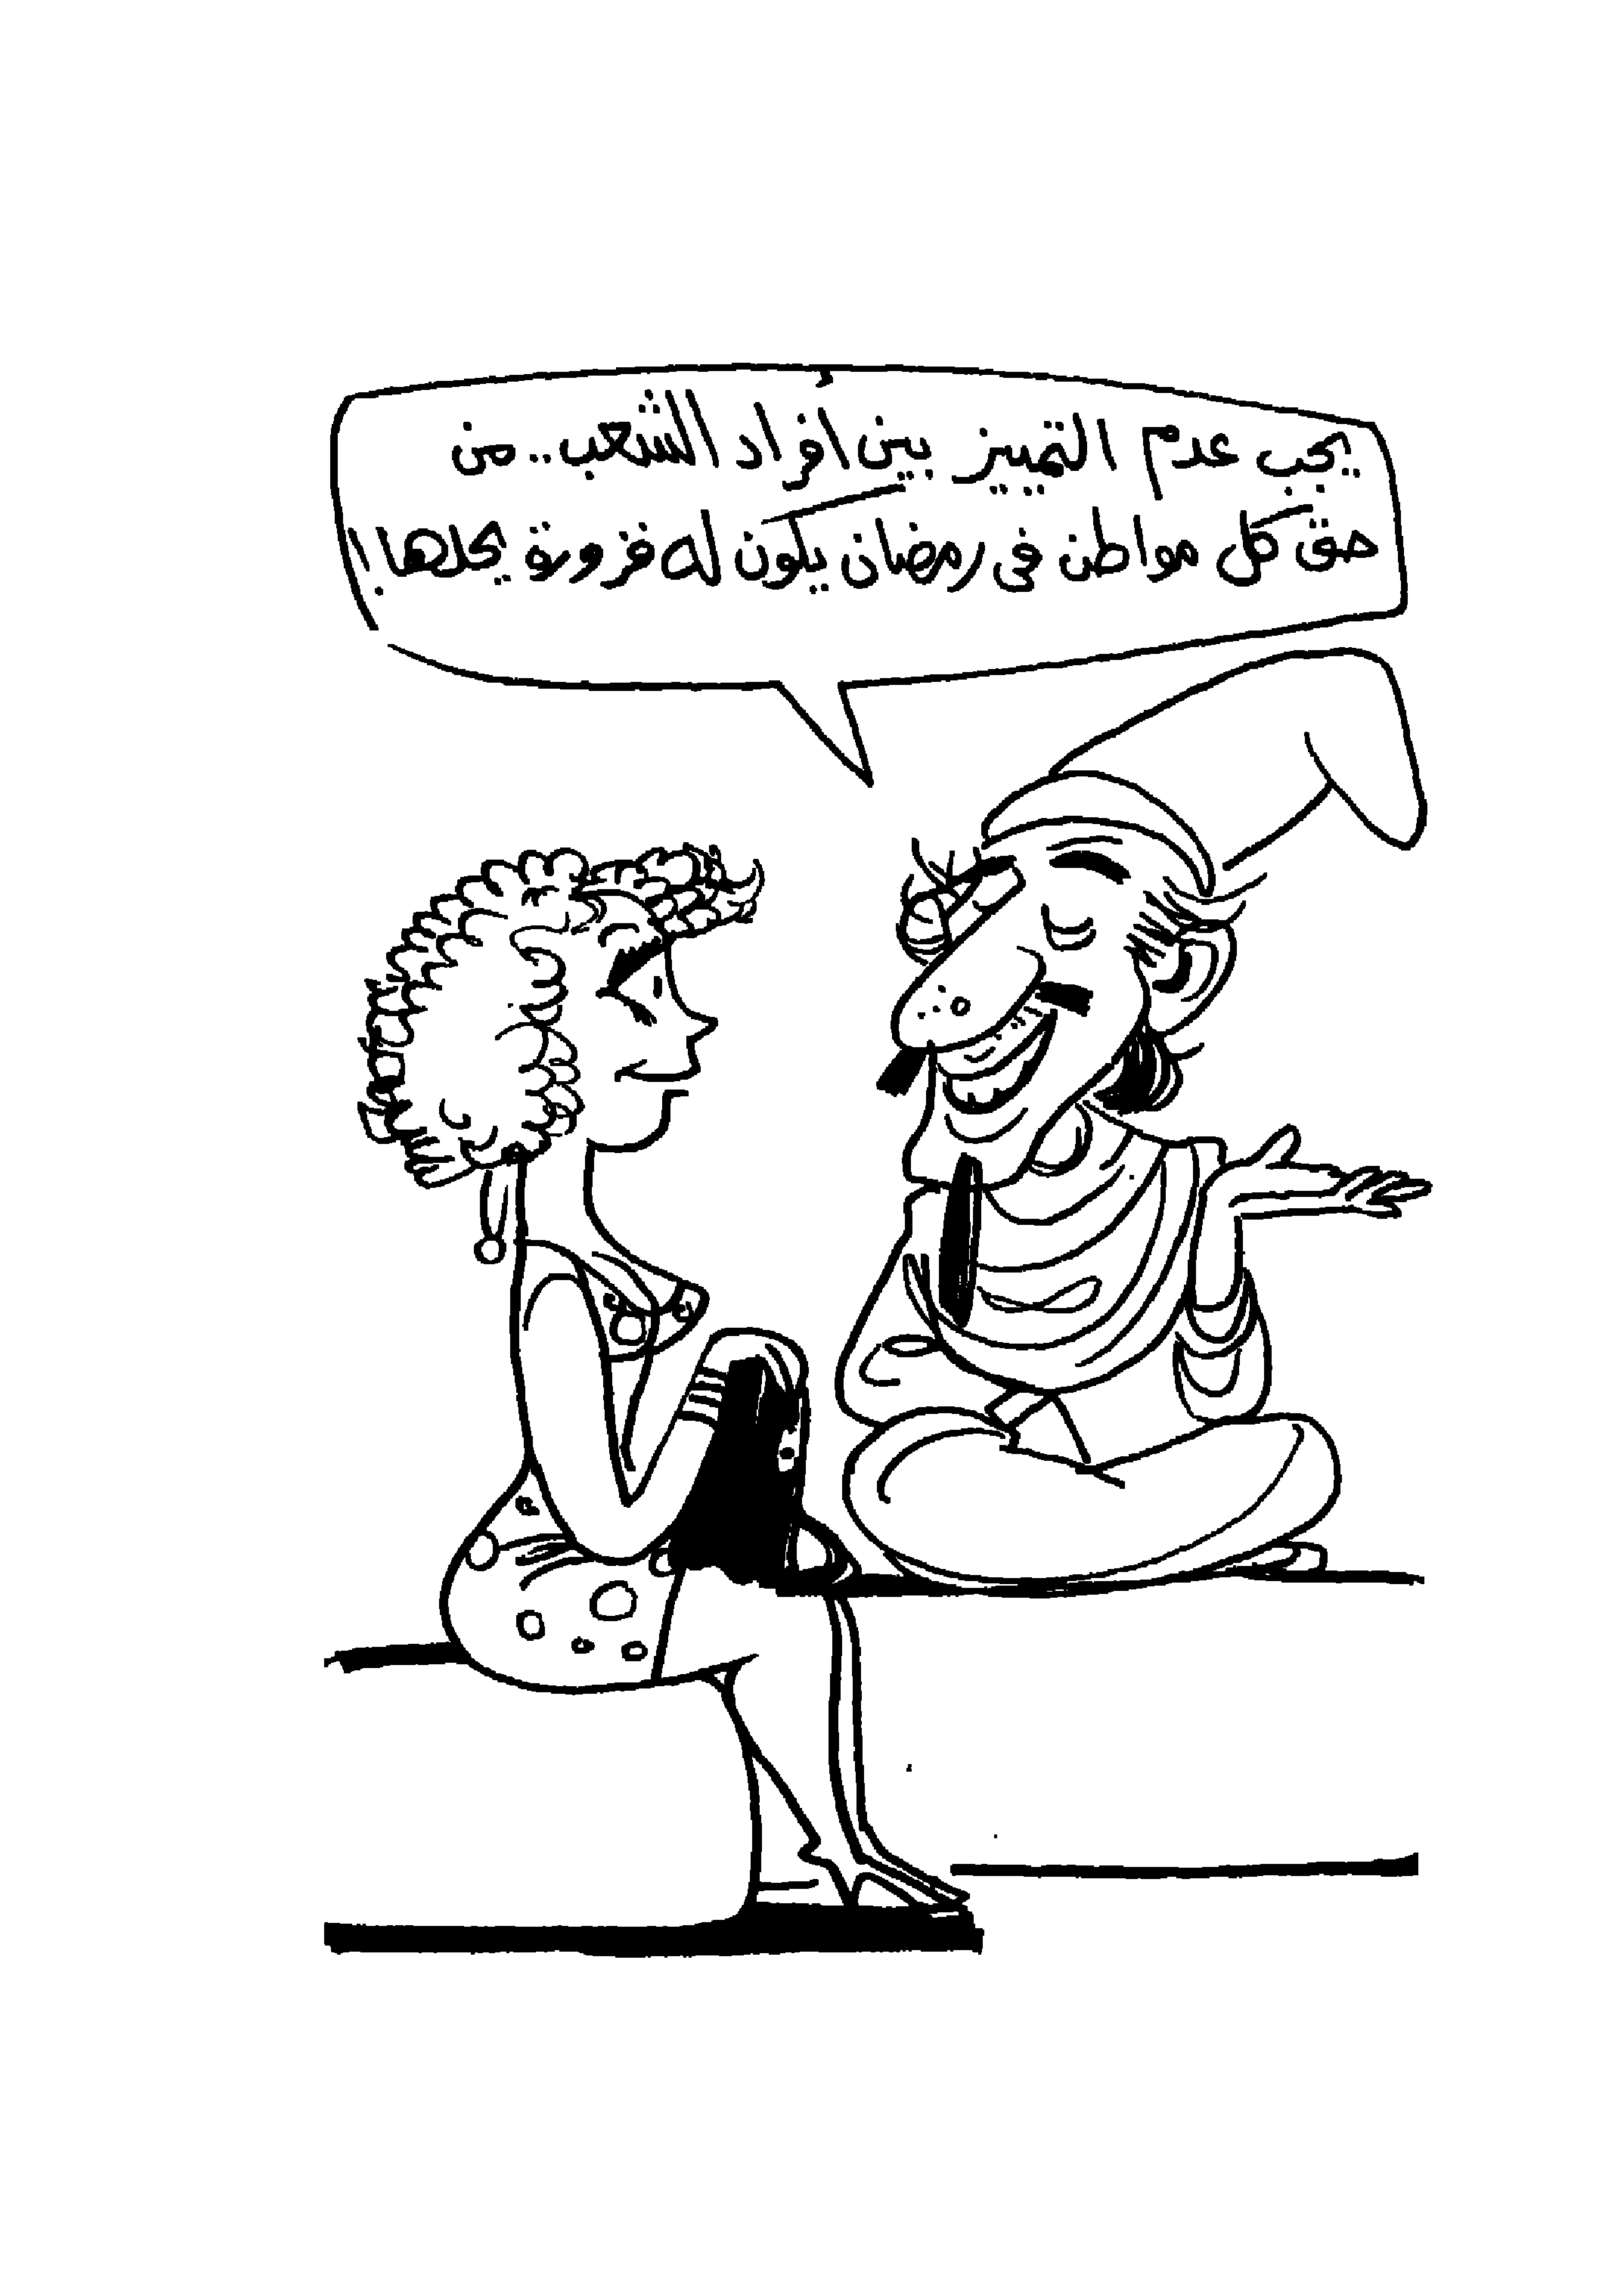 يجب عدم التمييز بين أفراد الشعب.. من
حق كل مواطن فى رمضان يكون له فزورة يحلها!!